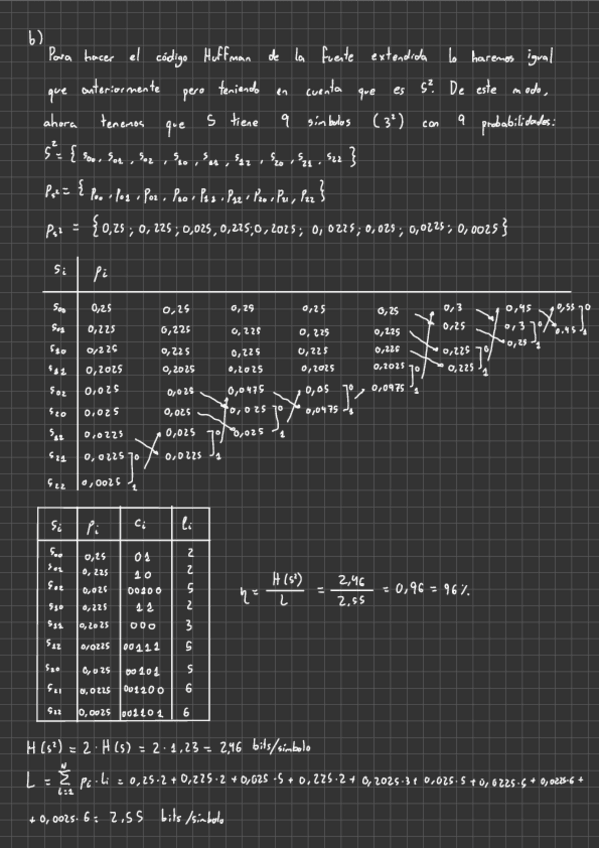 b)
Para hacer el código Huffman de la fuente extendida lo haremos igual
que anteriormente pero teniendo en cuenta que es S². De este modo,
ahora tenemos que S tiene 9 símbolos (3²) con 9 probabilidades:
S² = { S₀₀, S₀₁, S₀₂, S₁₀, S₁₁, S₁₂, S₂₀, S₂₁, S₂₂ }
Ps² = { P₀₀, P₀₁, P₀₂, P₁₀, P₁₁, P₁₂, P₂₀, P₂₁, P₂₂ }
Ps² = { 0,25; 0,225; 0,025, 0,225, 0,2025; 0,0225; 0,025, 0,0225; 0,0025 }
Si Pi
S₀₀ 0,25 0,25 0,25 0,25 0,25 0,3 0,45 0,55 0
S₀₁ 0,225 0,225 0,225 0,225 0,225 0,25 0,3 0 0.45 1
S₁₀ 0,225 0,225 0,225 0,225 0,225 0,225 0 0,25 1
S₁₁ 0,2025 0,2025 0,2025 0,2025 0,2025 0 0,225 1
S₀₂ 0,025 0,025 0,0475 0,05 0 0,0975 1
S₂₀ 0,025 0,025 0,025 0 0,0475 1
S₁₂ 0,0225 0,025 0 0,025 1
S₂₁ 0,0225 0 0,0225 1
S₂₂ 0,0025 1
Si Pi Ci li
S₀₀ 0,25 01 2
0,225 10 2
S₀₂ 0,025 00100 5
S₁₀ 0,225 11 2
S₁₁ 0,2025 000 3
S₁₂ 0,0225 00111 5
S₂₀ 0,025 00101 5
S₂₁ 0,0225 001100 6
S₂₂ 0,0025 001101 6
η = H(S²) / L = 2,46 / 2,55 = 0,96 = 96%
H(S²) = 2 · H(S) = 2 · 1,23 = 2,46 bits/símbolo
L = Σ Pi · Li = 0,25·2 + 0,225·2 + 0,025·5 + 0,225·2 + 0,2025·3 + 0,025·5 + 0,0225·5 + 0,0225·6 +
+ 0,0025·6 = 2,55 bits/símbolo